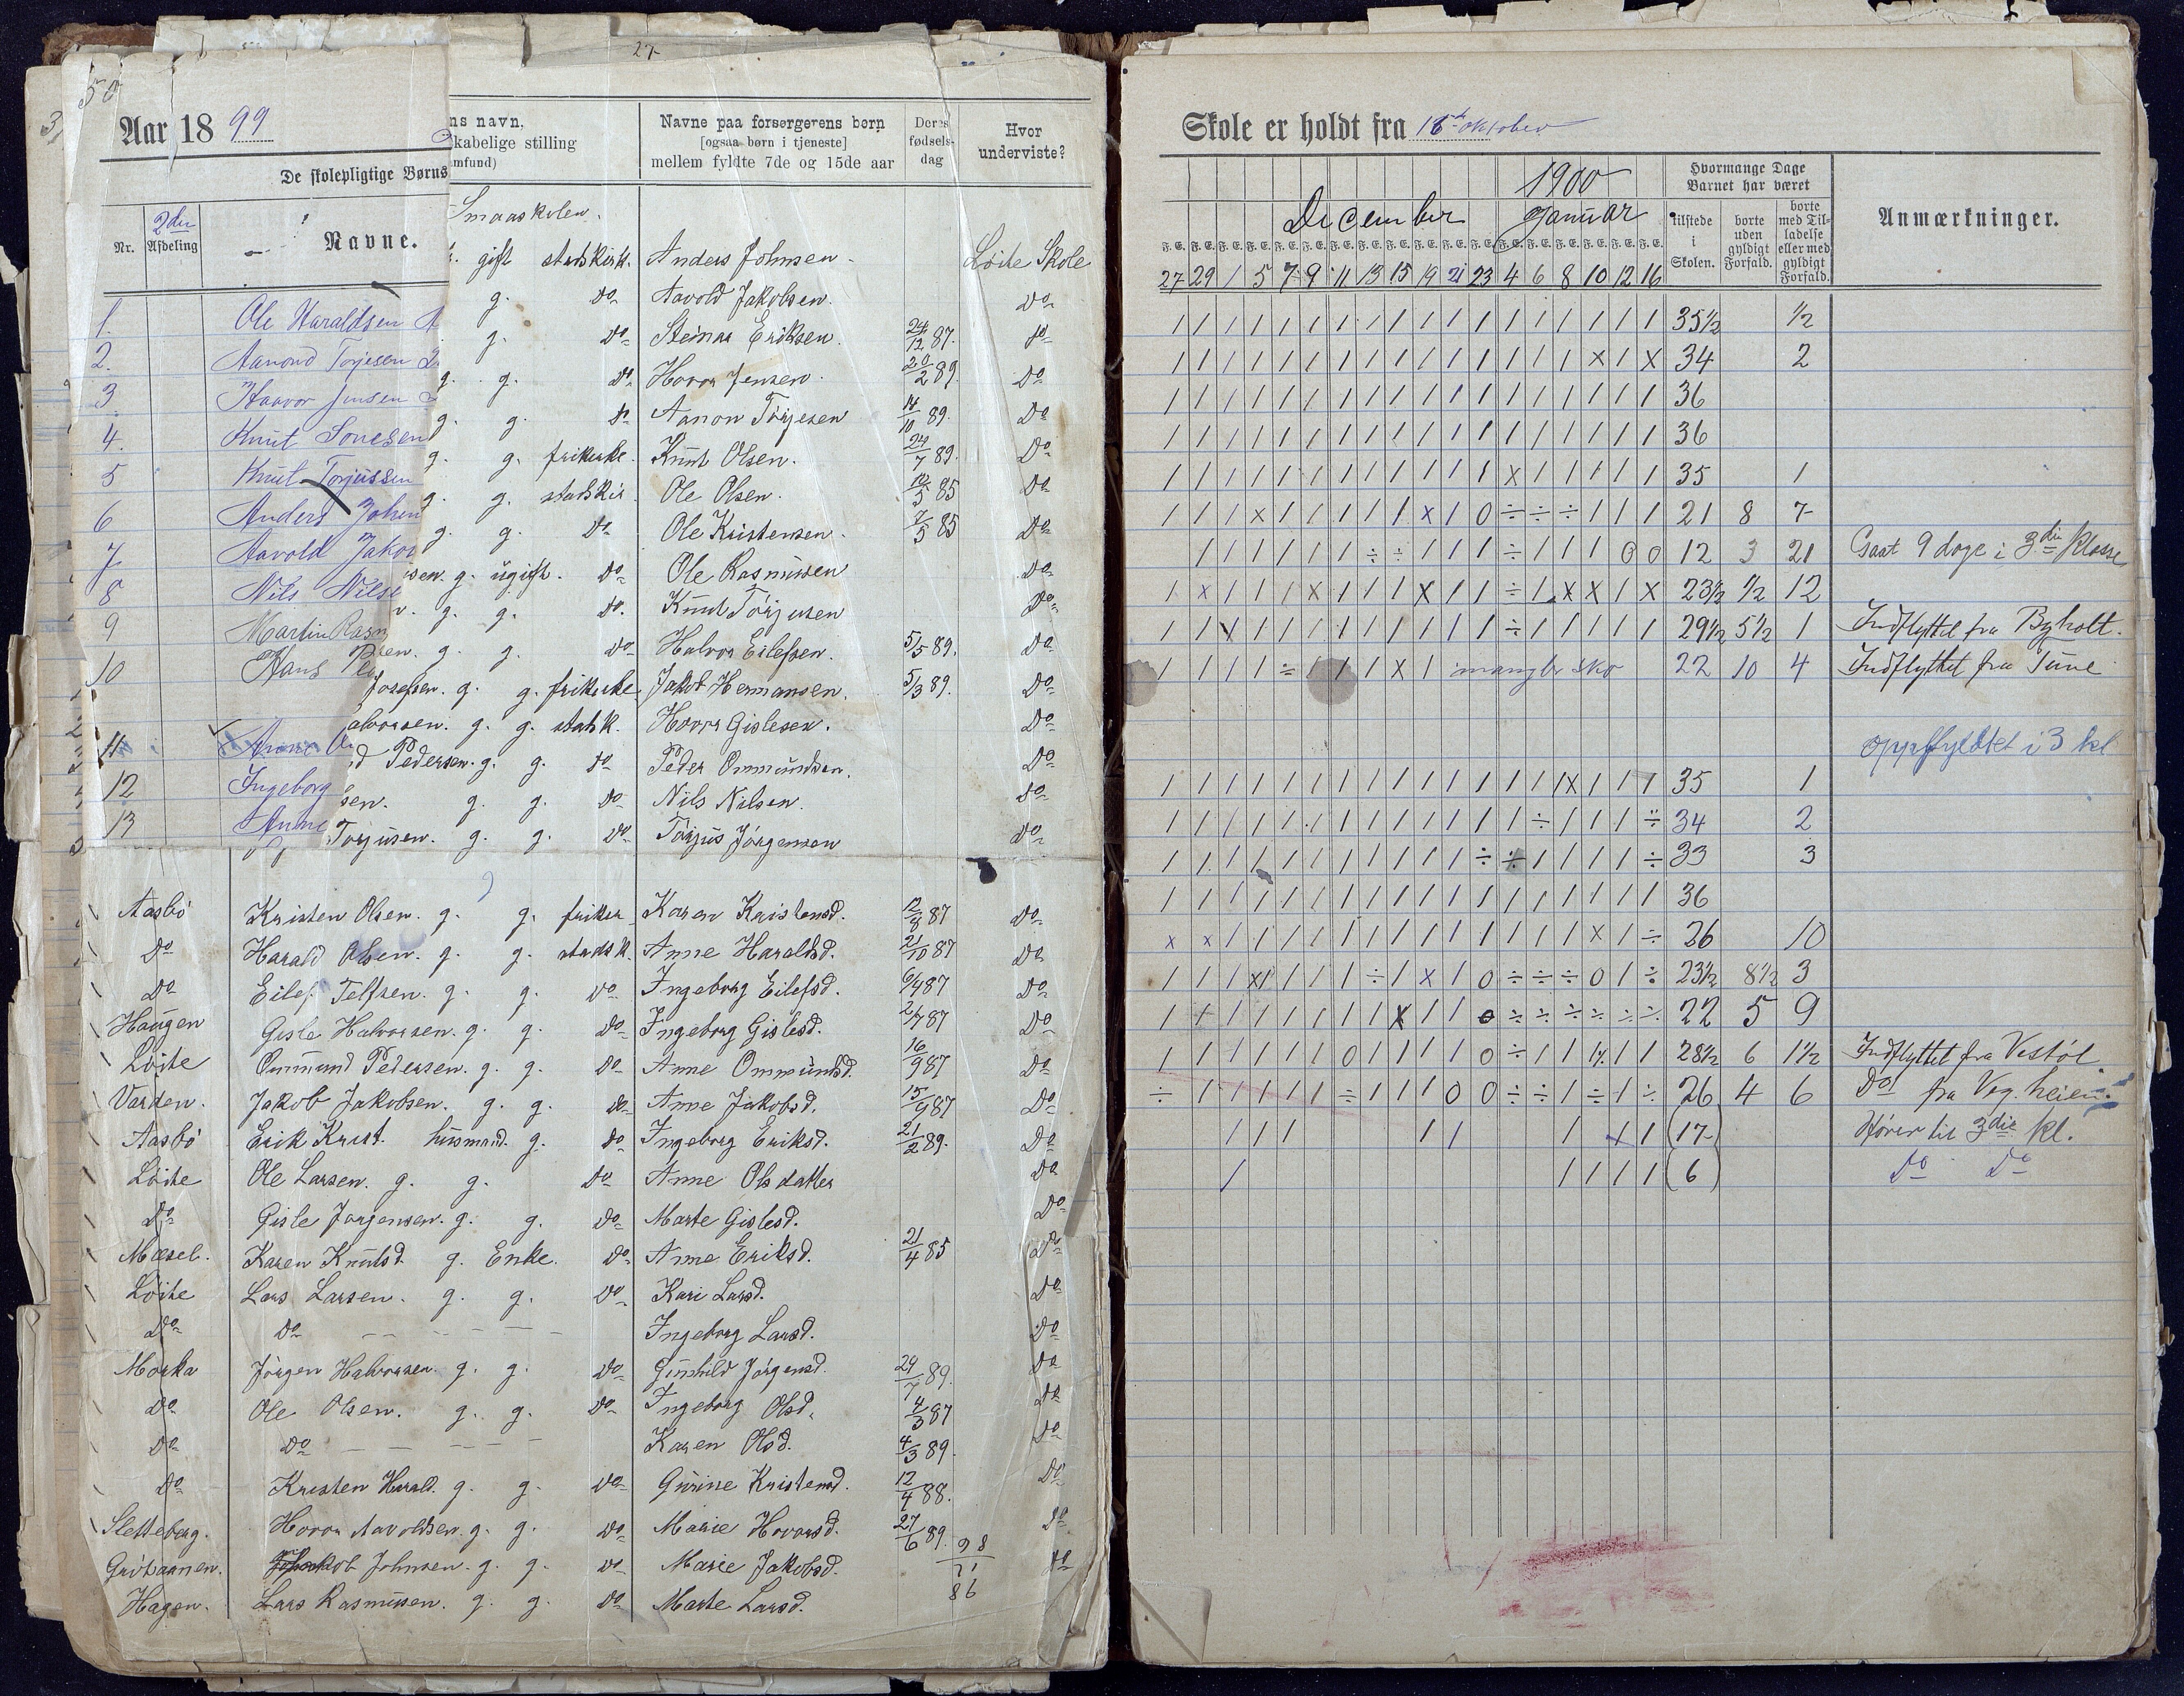 27
50
Aar 18 99
De skolepligtige Børns
2den
Nr. Afdeling Navne.
1. Ole Haraldsen
2. Aanond Torjesen
3 Haavor Jensen
4. Knut Tonesen
5 Knut Torjussen
6 Anders Johns
7. Aavold Jakob
8 Nils Nilse
9 Martin Rasm
10 Hans Pe
11 Anne
12 Ingeborg
13 Anne
ns navn,
kabelige stilling
mfund)
Navne paa forsørgerens børn
[ogsaa børn i tjeneste]
mellem fyldte 7de og 15de aar
Deres fødsels-dag
Hvor underviste?
Smaaskolen.
gift statskirk. Anders Johnsen Løite Skole
g. Do Aavold Jakobsen. Do
g. Do Steinar Eriksen. 24/12 87. Do
g. g. Do Hovor Jensen. 20/2 89. Do
g. g. Do Aanon Torjesen 14/10 89. Do
g. g. frikirke. Knut Olsen. 24/7 89. Do
g. g. statskir. Ole Olsen. 10/5 85 Do
g. g. Do Ole Kristensen. 7/5 85 Do
sen. g. ugift. Do Ole Rasmusen Do
g. g. Do. Knut Torjusen Do
sen. g. g. Do Halvor Eilefsen. 5/5 89. Do
Josefsen. g. g. frikirke Jakob Hermansen. 5/3 89. Do
alvorsen. g. g. statsk. Hovor Gislesen. Do
d Pedersen. g. g. Do Peder Ommundsen. Do
sen. g. g. Do Nils Nilsen. Do
Torjusen. g. g. Do Torjus Jørgensen Do
Aasbø Kristen Olsen. g. g. frikir Karen Kristensd. 12/8 87 Do
Do Harald Olsen. g. g. statsk. Anne Haraldsd. 21/10 87 Do
Do Eilef Telfsen. g. g. Do Ingeborg Eilefsd. 6/4 87 Do
Haugen Gisle Halvorsen. g. g. Do Ingeborg Gislesd. 2/7 87 Do
Løite Ommund Pedersen. g. g. Do Anne Ommundsd. 16/9 87 Do
Varden. Jakob Jakobsen. g. g. Do Anne Jakobsd. 15/9 87 Do
Aasbø Erik Krist. husmand. g. Do Ingeborg Eriksd. 21/2 89. Do
Løite Ole Larsen. g. g. Do Anne Olsdatter Do
Do Gisle Jørgensen. g. g. Do Marte Gislesd. Do
Mæsel. Karen Knutsd. g. Enke. Do Anne Eriksd. 21/4 85 Do
Løite Lars Larsen. g. g. Do Kari Larsd. Do
Do Do Ingeborg Larsd. Do
Morka Jörgen Halvorsen. g. g. Do Gunhild Jörgensd. 24/7 89. Do
Do Ole Olsen. g. g. Do Ingeborg Olsd. 4/3 87 Do
Do Do Karen Olsd. 4/3 89. Do
Do Kristen Harald. g. g. Do Gurine Kristensd. 12/4 88. Do
Sletteberg. Hovor Aavoldsen. g. g. Do Marie Hovorsd. 27/6 89. Do
Johnsen. g. g. Do Marie Jakobsd. Do
Hagen. Lars Rasmusen. g. g. Do Marte Larsd.
98
11
86
Skole er holdt fra 16de oktober
1900
December Januar
Hvormange Dage Barnet har været
tilstede i Skolen.
borte uden gyldigt Forfald.
borte med Tilladelse eller med gyldigt Forfald.
Anmærkninger.
F. E. F. E. F. E. F. E. F. E. F. E. F. E. F. E. F. E. F. E. F. E. F. E. F. E. F. E. F. E. F. E. F. E. F. E.
27 29 1 5 7 9 11 13 15 19 21 23 4 6 8 10 12 16
35½ ½
34 2
36
36
35 1
21 8 7
12 3 21 Gaat 9 dage i 3die klasse
23½ ½ 12
29½ 5½ 1 Indflyttet fra Byholt.
mangler sko 22 10 4 Indflyttet fra Tune
oppflyttet i 3 kl
35 1
34 2
33 3
36
26 10
23½ 8½ 3
22 5 9
28½ 6 1½ Indflyttet fra Vestøl
26 4 6 Do fra Veg. heien.
(17) Hører til 3die kl.
(6) Do Do